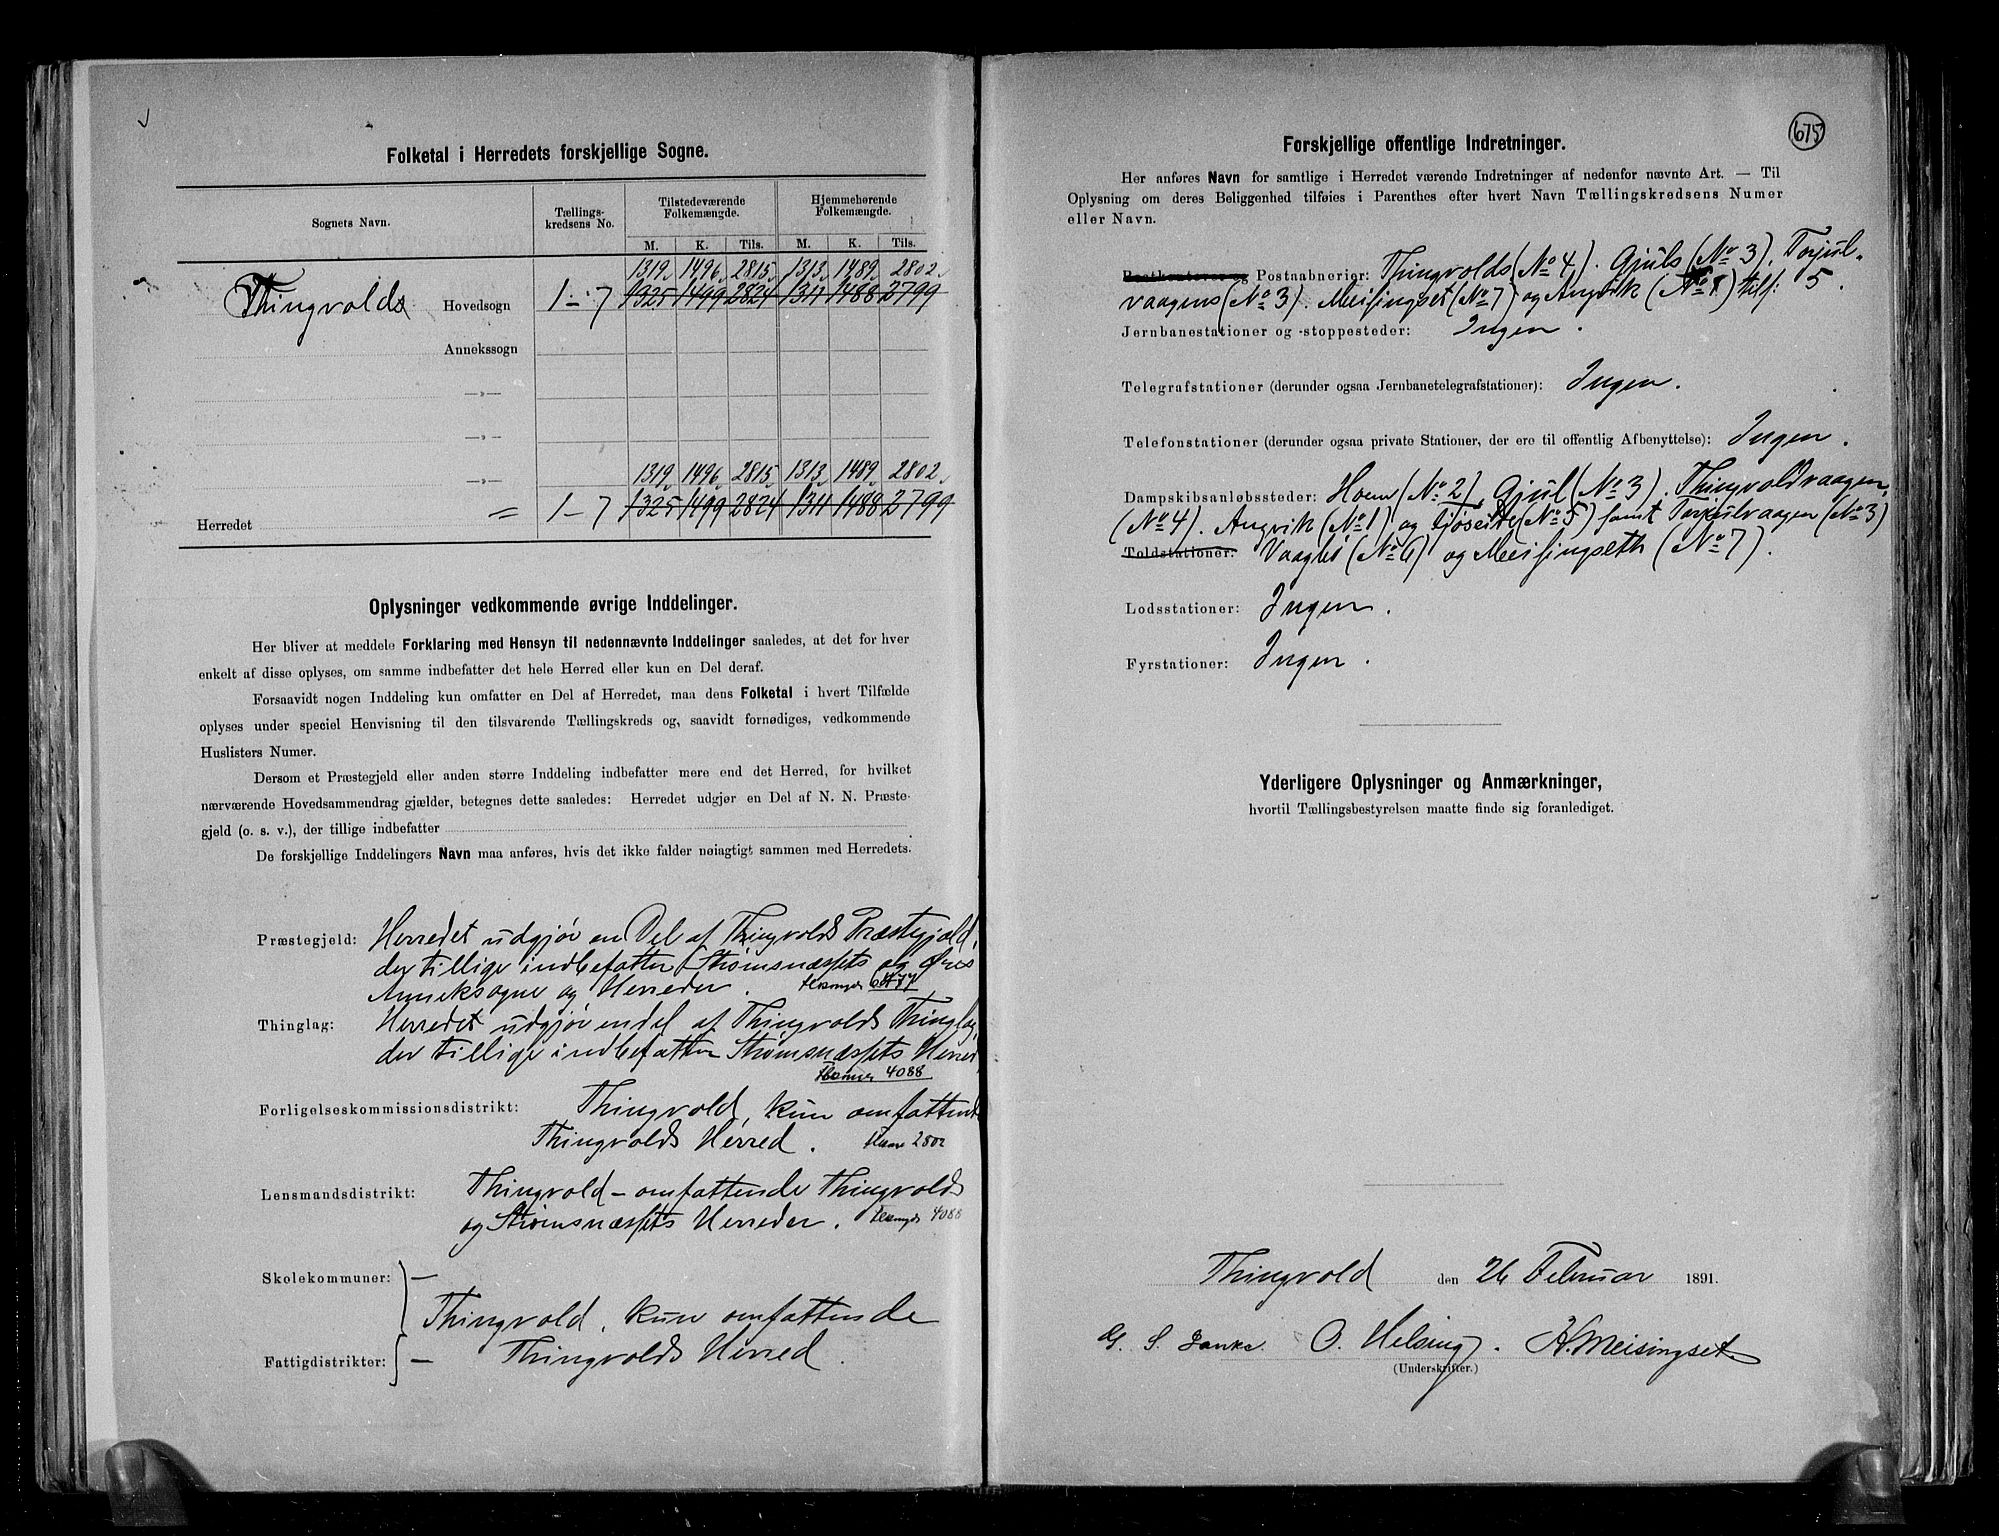 Folketal i Herredets forskjellige Sogne.
Sognets Navn. Tællings-kredsens No. Tilstedeværende Folkemængde. Hjemmehørende Folkemængde.
M. K. Tils. M. K. Tils.
1319 1496 2815 1313 1489 2802
Thingvolds Hovedsogn 1-7 1325 1499 2824 1311 1488 2799
Annekssogn
—„—
—„—
1319 1496 2815 1313 1489 2802
—„—
Herredet = 1-7 1325 1499 2824 1311 1488 2799
Oplysninger vedkommende øvrige Inddelinger.
Her bliver at meddele Forklaring med Hensyn til nedennævnte Inddelinger saaledes, at det for hver
enkelt af disse oplyses, om samme indbefatter det hele Herred eller kun en Del deraf.
Forsaavidt nogen Inddeling kun omfatter en Del af Herredet, maa dens Folketal i hvert Tilfælde
oplyses under speciel Henvisning til den tilsvarende Tællingskreds og, saavidt fornødiges, vedkommende
Huslisters Numer.
Dersom et Præstegjeld eller anden større Inddeling indbefatter mere end det Herred, for hvilket
nærværende Hovedsammendrag gjælder, betegnes dette saaledes: Herredet udgjør en Del af N. N. Præste-
gjeld (o. s. v.), der tillige indbefatter
De forskjellige Inddelingers Navn maa anføres, hvis det ikke falder nøiagtigt sammen med Herredets.
Præstegjeld: Herredet udgjør en Del af Thingvolds Præstegjæld,
der tillige indbefatter Strømsnæssets og Øres
Annekssogne og Herreder.
Thinglag: Herredet udgjør endel af Thingvolds Thinglag,
der tillige indbefatter Strømsnæssets Herred,
4088
Forligelseskommissionsdistrikt: Thingvold, kun omfattende
Thingvolds Herred. 2802
Lensmandsdistrikt: Thingvold – omfattende Thingvolds
og Strømsnæssets Herreder. 4088
Skolekommuner: —
Thingvold, kun omfattende
Fattigdistrikter: — Thingvolds Herred.
675
Forskjellige offentlige Indretninger.
Her anføres Navn for samtlige i Herredet værende Indretninger af nedenfor nævnte Art. — Til
Oplysning om deres Beliggenhed tilføies i Parenthes efter hvert Navn Tællingskredsens Numer
eller Navn.
Postkontorer og Postaabnerier: Thingvolds (No 4). Gjuls (No 3). Torjul-
vaagens (No 3). Meisingset (No 7) og Angvik (No 1) tils: 5.
Jernbanestationer og -stoppesteder: Ingen.
Telegrafstationer (derunder ogsaa Jernbanetelegrafstationer): Ingen.
Telefonstationer (derunder ogsaa private Stationer, der ere til offentlig Afbenyttelse): Ingen.
Dampskibsanløbssteder: Hoem (No 2), Gjul (No 3). Thingvoldvaagen,
(No 4). Angvik (No 1) og (No 5) samt Torjulvaagen (No 3)
Toldstationer: Vaagbø (No 6) og Meisingseth (No 7).
Lodsstationer: Ingen.
Fyrstationer: Ingen.
Yderligere Oplysninger og Anmærkninger,
hvortil Tællingsbestyrelsen maatte finde sig foranlediget.
Thingvold den 26 Februar 1891.
G. S. O. Helsing. H. Meisingset.
(Underskrifter.)